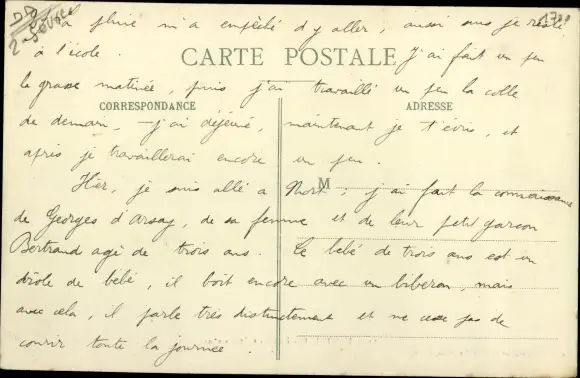 La pluie m'a empêché d'y aller, aussi suis je resté
à l'école.
CARTE POSTALE
J'ai fait un peu
la grasse matinée, puis j'ai travaillé un peu la colle
CORRESPONDANCE
ADRESSE
de demain, – j'ai déjeuné, maintenant je t'écris, et
après je travaillerai encore un peu.
M
Hier, je suis allé à Niort ; j'ai fait la connaissance
de Georges d'Arsay, de sa femme et de leur petit garçon
Bertrand agé de trois ans. Ce bébé de trois ans est un
drôle de bébé, il boit encore avec un biberon, mais
avec cela, il parle très distinctement et ne cesse pas de
courir toute la journée.